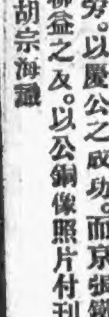 旁。以慶公之成功。而京張鐵
聯益之友。以公銅像照片付刊
胡宗海識